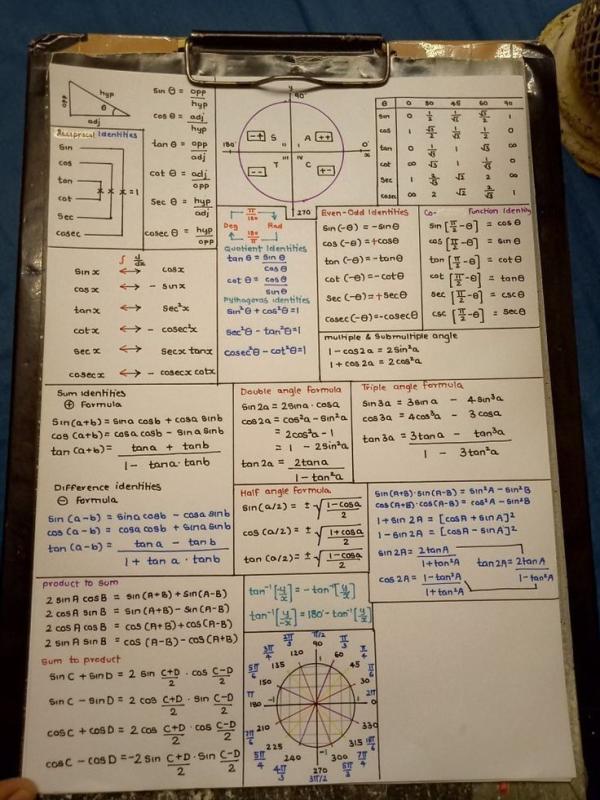 opp
hyp
θ
adj
sin θ = opp/hyp
cos θ = adj/hyp
tan θ = opp/adj
cot θ = adj/opp
sec θ = hyp/adj
cosec θ = hyp/opp
Reciprocal Identities
sin
cos
tan
cot
sec
cosec
= 1
y
90°
180°
0°
x
270
-+ S
A ++
-- T
C +-
II I
III IV
θ 0 30 45 60 90
sin 0 1/2 1/√2 √3/2 1
cos 1 √3/2 1/√2 1/2 0
tan 0 1/√3 1 √3 ∞
cot ∞ √3 1 1/√3 0
sec 1 2/√3 √2 2 ∞
cosec ∞ 2 √2 2/√3 1
∫ dy/dx
sinx ↔ cosx
cosx ↔ - sinx
tanx ↔ sec²x
cotx ↔ - cosec²x
secx ↔ secx tanx
cosecx ↔ - cosecx cotx
π/180
Deg Rad
180/π
Quotient Identities
tan θ = sin θ/cos θ
cot θ = cos θ/sin θ
Pythagoras identities
sin²θ + cos²θ = 1
sec²θ - tan²θ = 1
cosec²θ - cot²θ = 1
Even-Odd Identities
sin(-θ) = -sinθ
cos(-θ) = +cosθ
tan(-θ) = -tanθ
cot(-θ) = -cotθ
sec(-θ) = +secθ
cosec(-θ) = -cosecθ
Co- Function Identity
sin[π/2 - θ] = cosθ
cos[π/2 - θ] = sinθ
tan[π/2 - θ] = cotθ
cot[π/2 - θ] = tanθ
sec[π/2 - θ] = cscθ
csc[π/2 - θ] = secθ
multiple & Submultiple angle
1 - cos2a = 2sin²a
1 + cos2a = 2cos²a
Sum identities
⊕ Formula
sin(a+b) = sina cosb + cosa sinb
cos(a+b) = cosa cosb - sina sinb
tan(a+b) = tana + tanb/1 - tana·tanb
Difference identities
⊖ formula
sin(a-b) = sina cosb - cosa sinb
cos(a-b) = cosa cosb + sina sinb
tan(a-b) = tana - tanb/1 + tana·tanb
Double angle Formula
sin2a = 2sina·cosa
cos2a = cos²a - sin²a
= 2cos²a - 1
= 1 - 2sin²a
tan2a = 2tana/1 - tan²a
Triple angle formula
sin3a = 3sina - 4sin³a
cos3a = 4cos³a - 3cosa
tan3a = 3tana - tan³a/1 - 3tan²a
Half angle Formula
sin(a/2) = ± √1-cosa/2
cos(a/2) = ± √1+cosa/2
tan(a/2) = ± √1-cosa
sin(A+B)·sin(A-B) = sin²A - sin²B
cos(A+B)·cos(A-B) = cos²A - sin²B
1 + sin2A = [cosA + sinA]²
1 - sin2A = [cosA - sinA]²
sin2A = 2tanA/1+tan²A
cos2A = 1-tan²A/1+tan²A
tan2A = 2tanA/1-tan²A
product to sum
2 sinA cosB = sin(A+B) + sin(A-B)
2 cosA sinB = sin(A+B) - sin(A-B)
2 cosA cosB = cos(A+B) + cos(A-B)
2 sinA sinB = cos(A-B) - cos(A+B)
Sum to product
sinC + sinD = 2 sin C+D/2 · cos C-D/2
sinC - sinD = 2 cos C+D/2 · sin C-D/2
cosC + cosD = 2 cos C+D/2 · cos C-D/2
cosC - cosD = -2 sin C+D/2 · sin C-D/2
tan⁻¹[-y/x] = -tan⁻¹[y/x]
tan⁻¹[y/-x] = 180° - tan⁻¹[y/x]
2π/3 π/2 π/3
120 90 60
3π/4 135 1 45 π/4
5π/6 150 30 π/6
π 180 -1 1 0 2π
7π/6 210 330
5π/4 225 -1 315
4π/3 240 270 300 5π/3
3π/2
7π/4